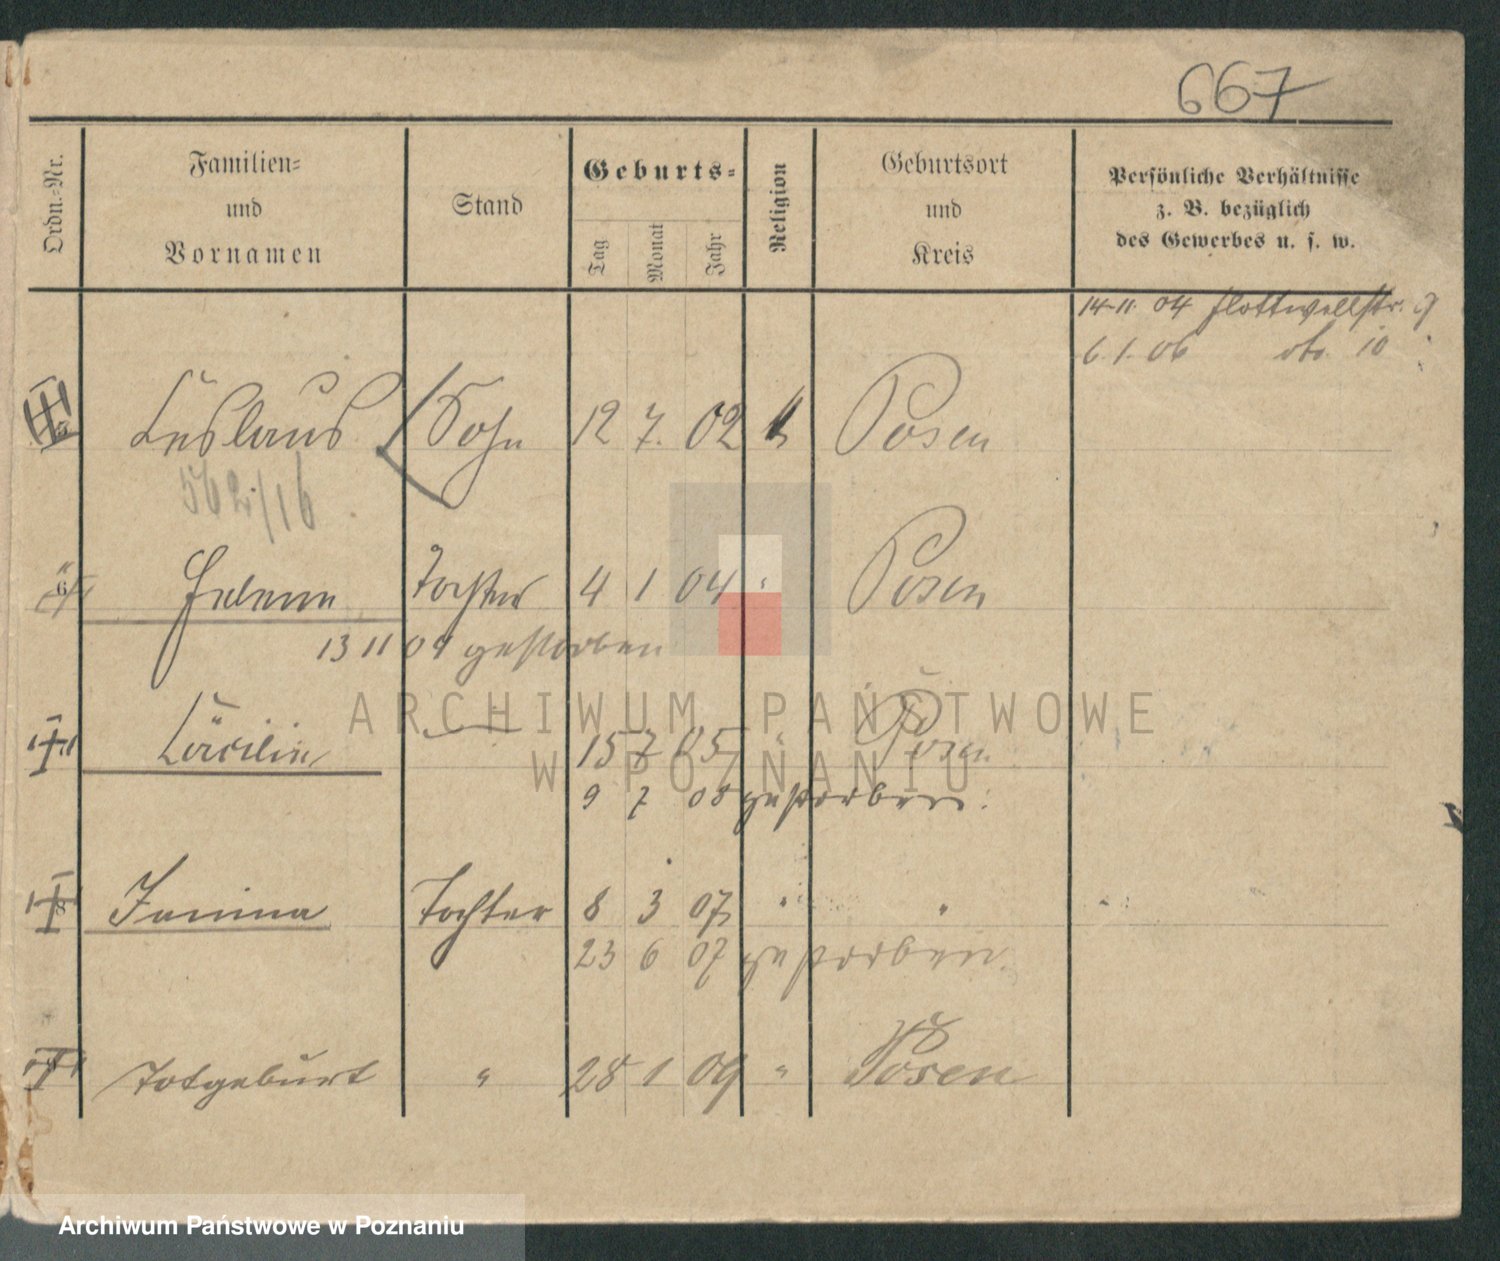 667
Ordn.-Nr.
Familien- und Vornamen
Stand
Geburts-
Tag
Monat
Jahr
Religion
Geburtsort und Kreis
Persönliche Verhältnisse
z. B. bezüglich
des Gewerbes u. s. w.
14.11. 04 Flottwellstr. 9
6.1.06 do. 10
Ceslaus Sohn 12 7. 02 Posen
562/16
6 Helene Tochter 4 1 04 " Posen
13 11 04 gestorben
Cäcilie 15 7 05 " Posen
9 7 08 gestorben.
Janina Tochter 8 3 07 " "
23 6 07 gestorben.
Totgeburt " 28 1 09 " Posen
ARCHIWUM PAŃSTWOWE
W POZNANIU
Archiwum Państwowe w Poznaniu